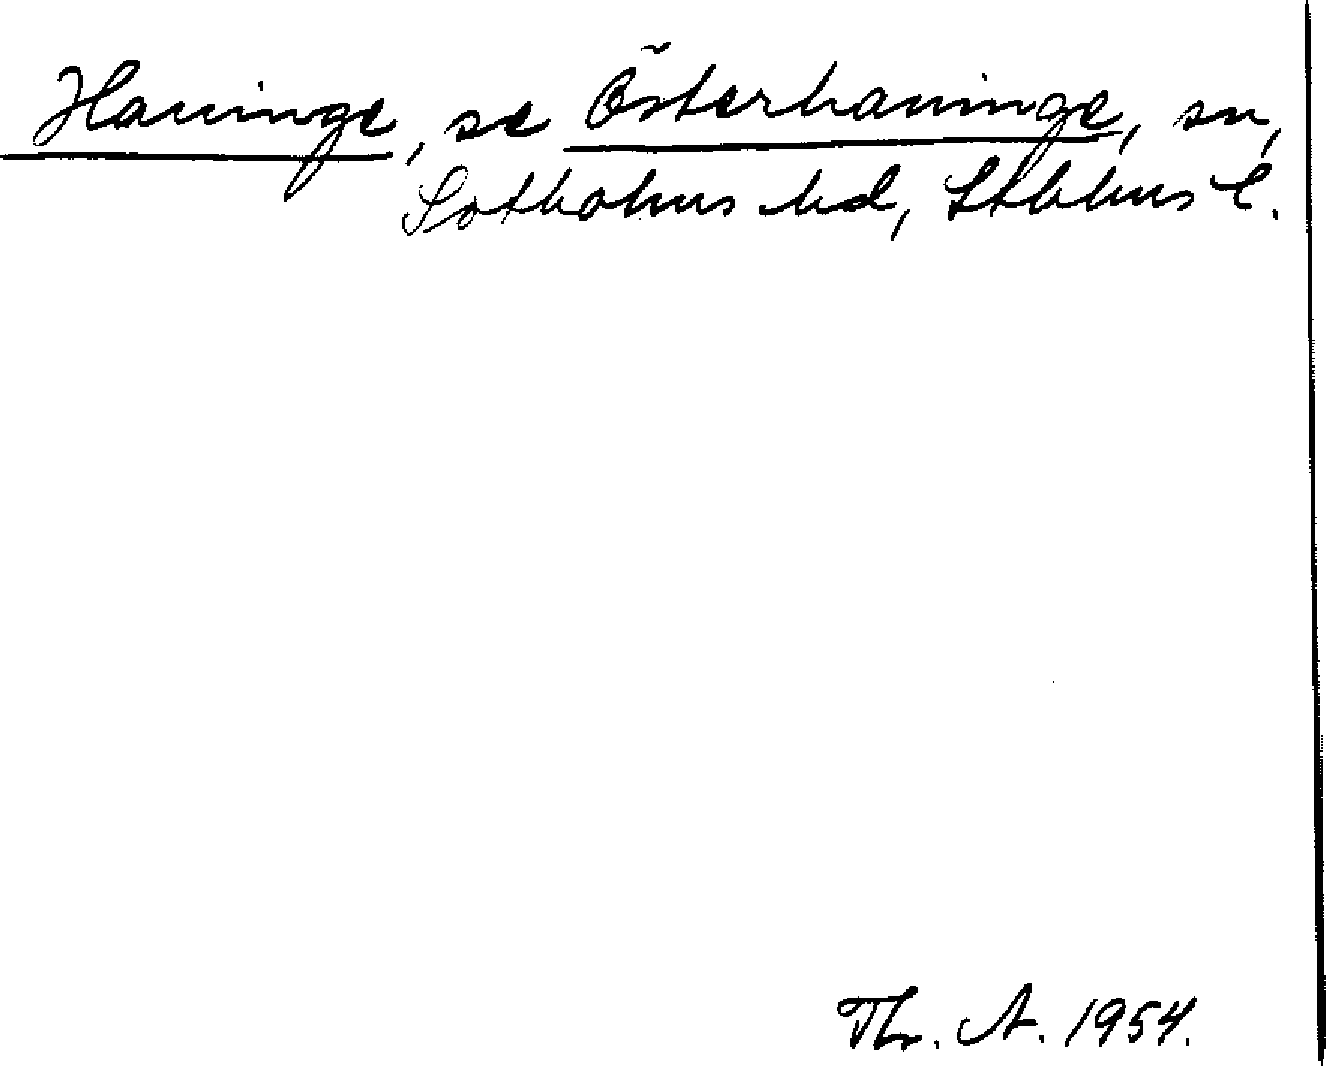 Haninge, se Österhaninge, sn,
Sotholms hd, Sthlms l.
Th. A. 1954.